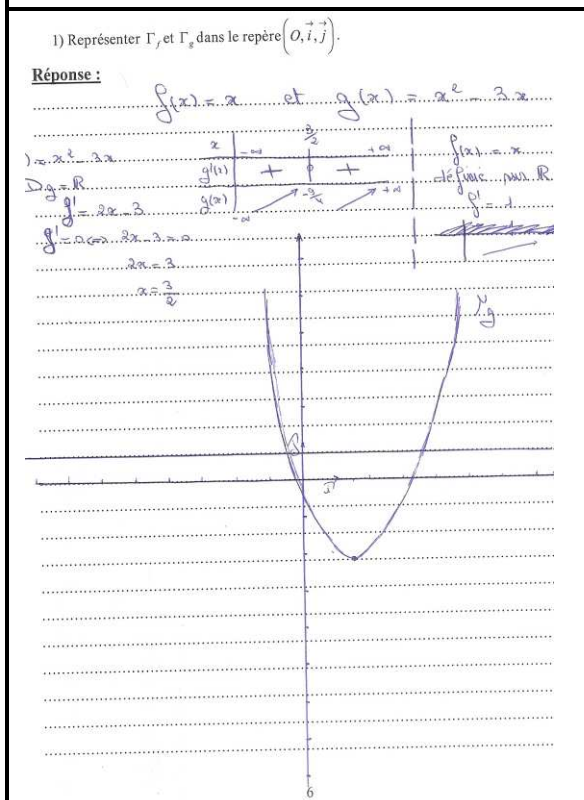 1) Représenter Γ_f et Γ_g dans le repère (O, i⃗, j⃗).
Réponse :
f(x) = x et g(x) = x² - 3x
) = x² - 3x
Dg = ℝ
g' = 2x - 3
g' = 0 <=> 2x - 3 = 0
2x = 3
x = 3/2
x -∞ 3/2 +∞
g'(x) + 0 +
g(x) -∞ -9/4 +∞
f(x) = x
définie sur ℝ
f' = 1
Γg
i⃗
6